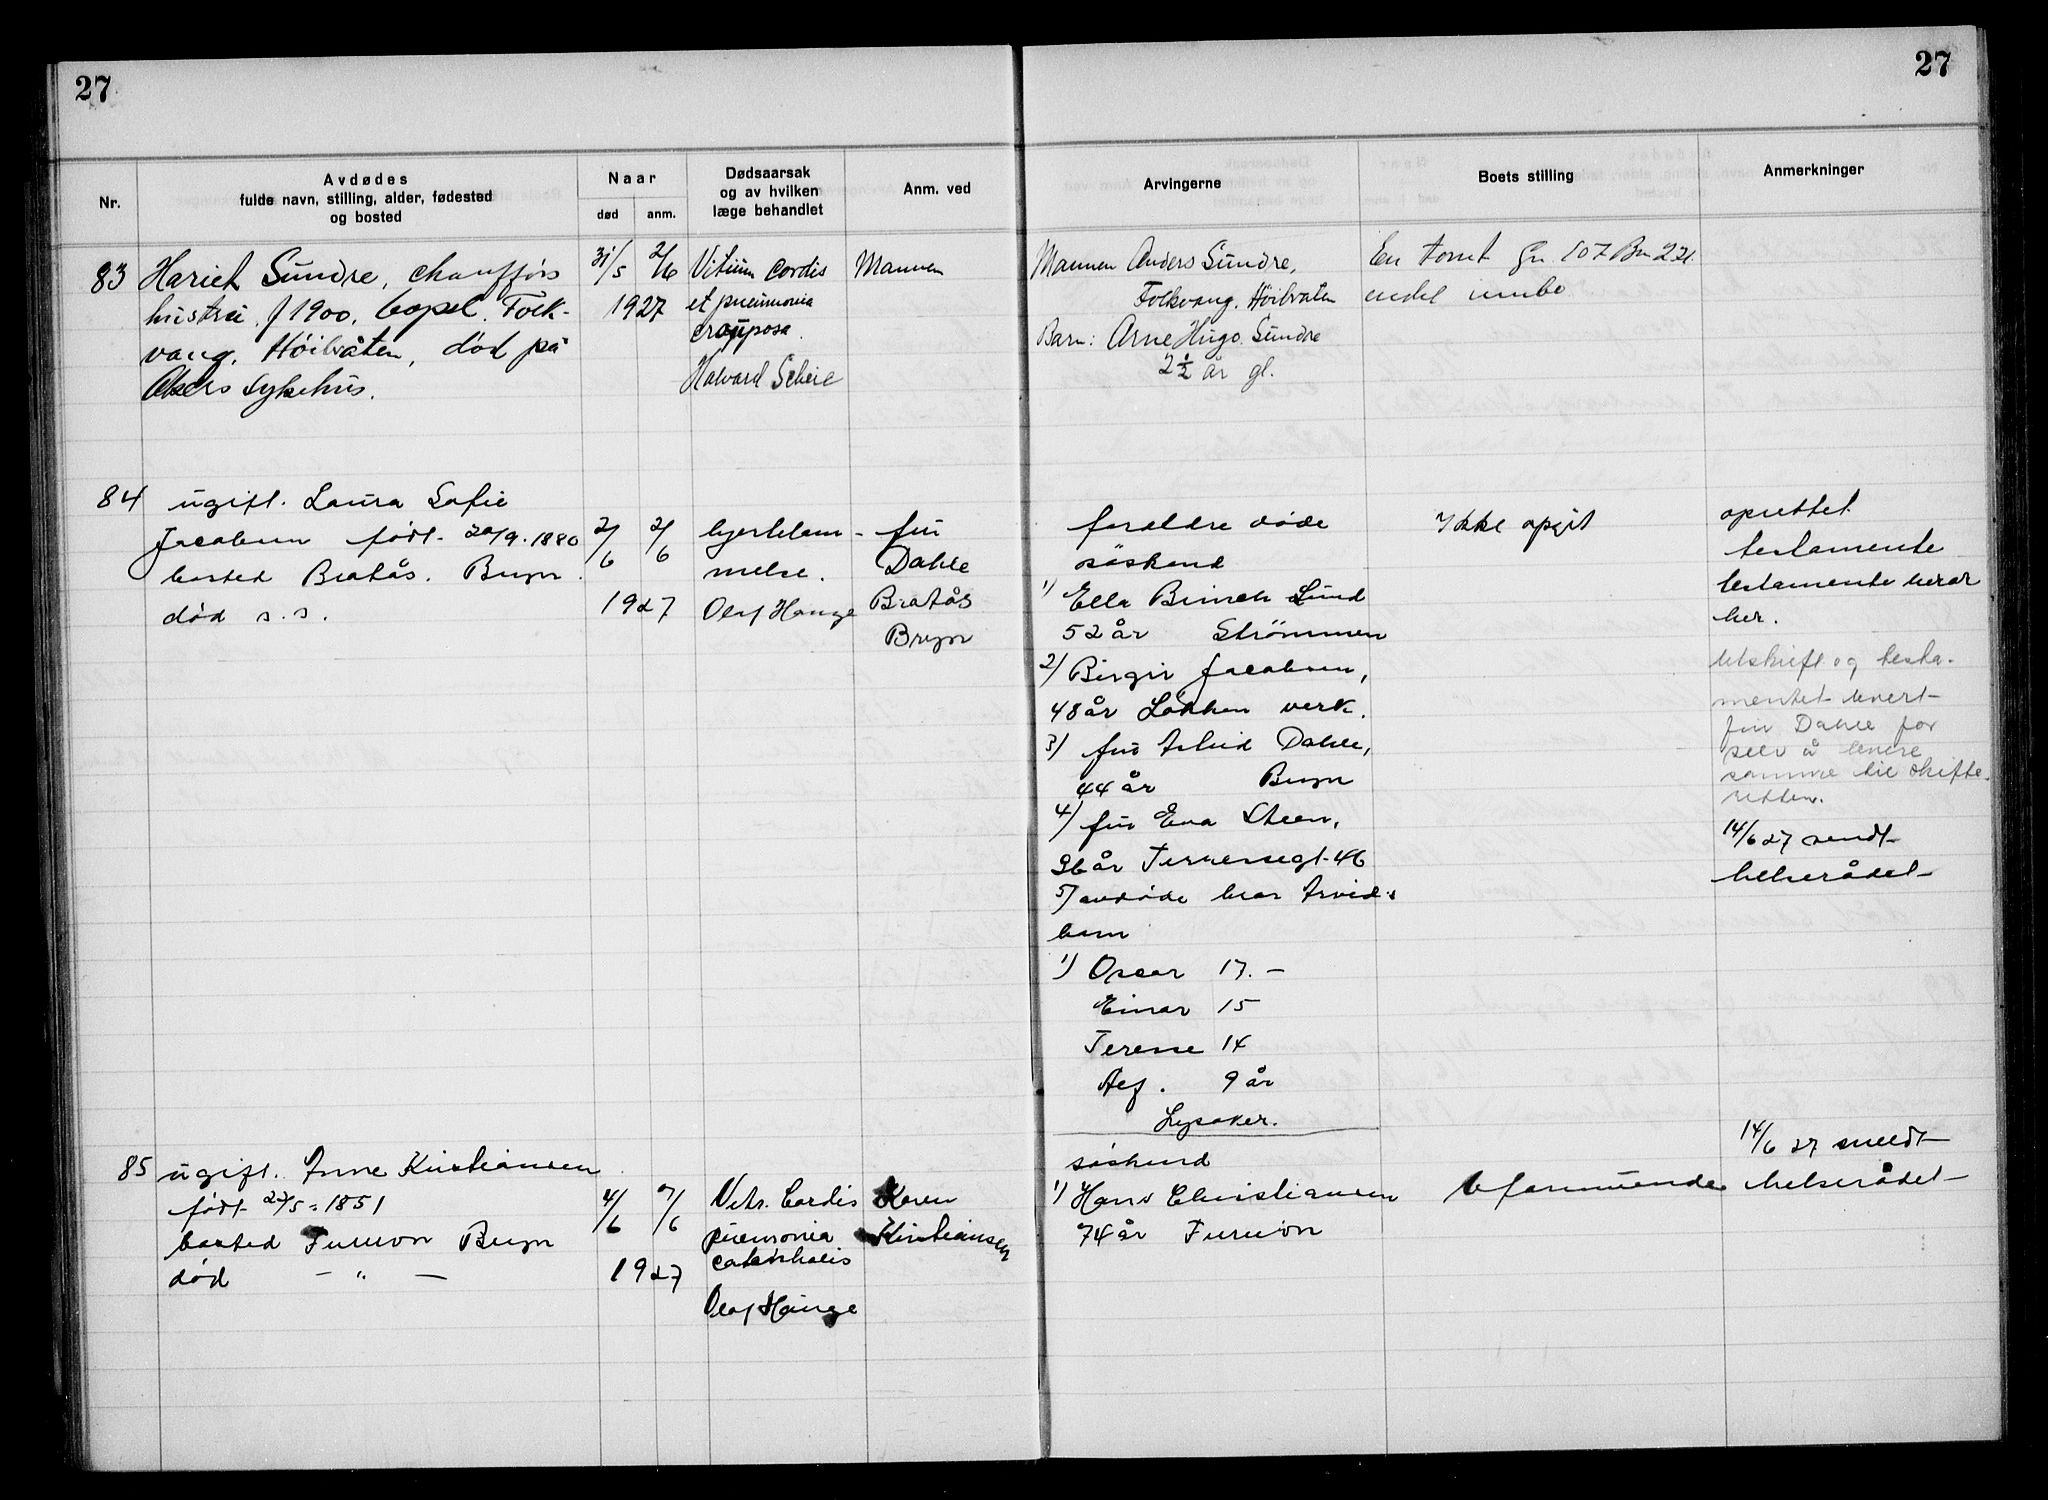 27
27
Nr.
Avdødes
fulde navn, stilling, alder, fødested
og bosted
Naar
død
anm.
Dødsaarsak
og av hvilken
læge behandlet
Anm. ved
Arvingerne
Boets stilling
Anmerkninger
83
Hariet Sundre, chauffførs
hustru. f 1900, Folk-
vang, Høibråten, død på
Akers sykehus.
31/5
2/6
1927
Vitium cordis
et pneumonia
crouposa.
Halvard Scheie
Mannen
Mannen Anders Sundre,
Folkvang, Høibråten
Barn: Arne Hugo Sundre
2 1/2 år gl.
En tomt Gn 107 Bn 221
endel innbo
84
ugift. Laura Sofie
Jacobsen født 20/9.1880
bosted Bratås. Bryn.
død s.s.
2/6
2/6
1927
hjertelam-
melse.
Olaf Hauge
fru
Dahle
Bratås
Bryn
foreldre døde
søskend
1) Ella Lund
52 år Strømmen
2) Birgir Jacobsen,
48 år Løkken verk.
3) fru Dahle,
44 år Bryn
4) fru Eva Steen,
36 år 46
5) avdøde bror Arvid's
barn
1) Oscar 17. –
Einar 15
Terese 14
9 år
Lysaker.
Ikke opgit
oprettet
testamente
testamente beror
her.
Utskrift og testa-
mentet levert
fru Dahle for
selv å levere
samme til skifte-
retten.
14/6 27 sendt
helserådet
85
ugift. Anne Kristiansen
født 27/5 = 1851
bosted Furumo Bryn
død – " –
4/6
7/6
1927
Vitr. Cordis
pnemonia
catarrhalis
Olaf Hauge
Karen
Kristiansen
søskend
1) Hans Christiansen
74 år Furumo
Uformuende
14/6 27 sendt
helserådet